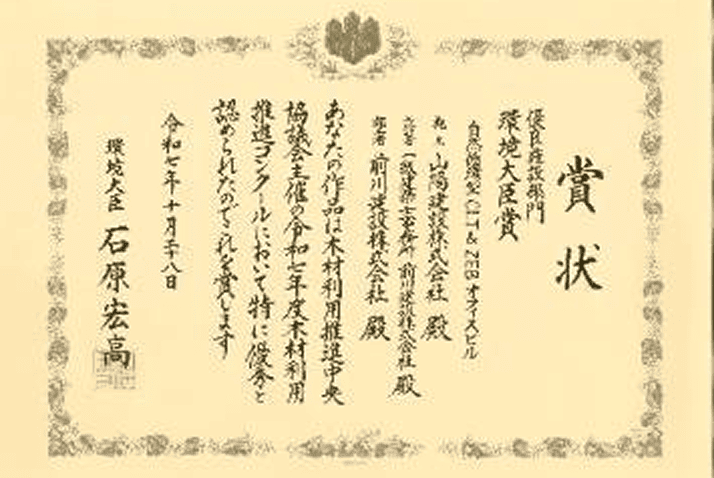 賞状
優良施設部門
環境大臣賞
自然循環型CLT&ZEBオフィスビル
施主 山陽建設株式会社 殿
一級建築士事務所 前川建設株式会社 殿
前川建設株式会社 殿
あなたの作品は木材利用推進中央
協議会主催の令和七年度木材利用
推進コンクールにおいて特に優秀と
認められたのでこれを賞します
令和七年十月二十八日
環境大臣 石原宏高